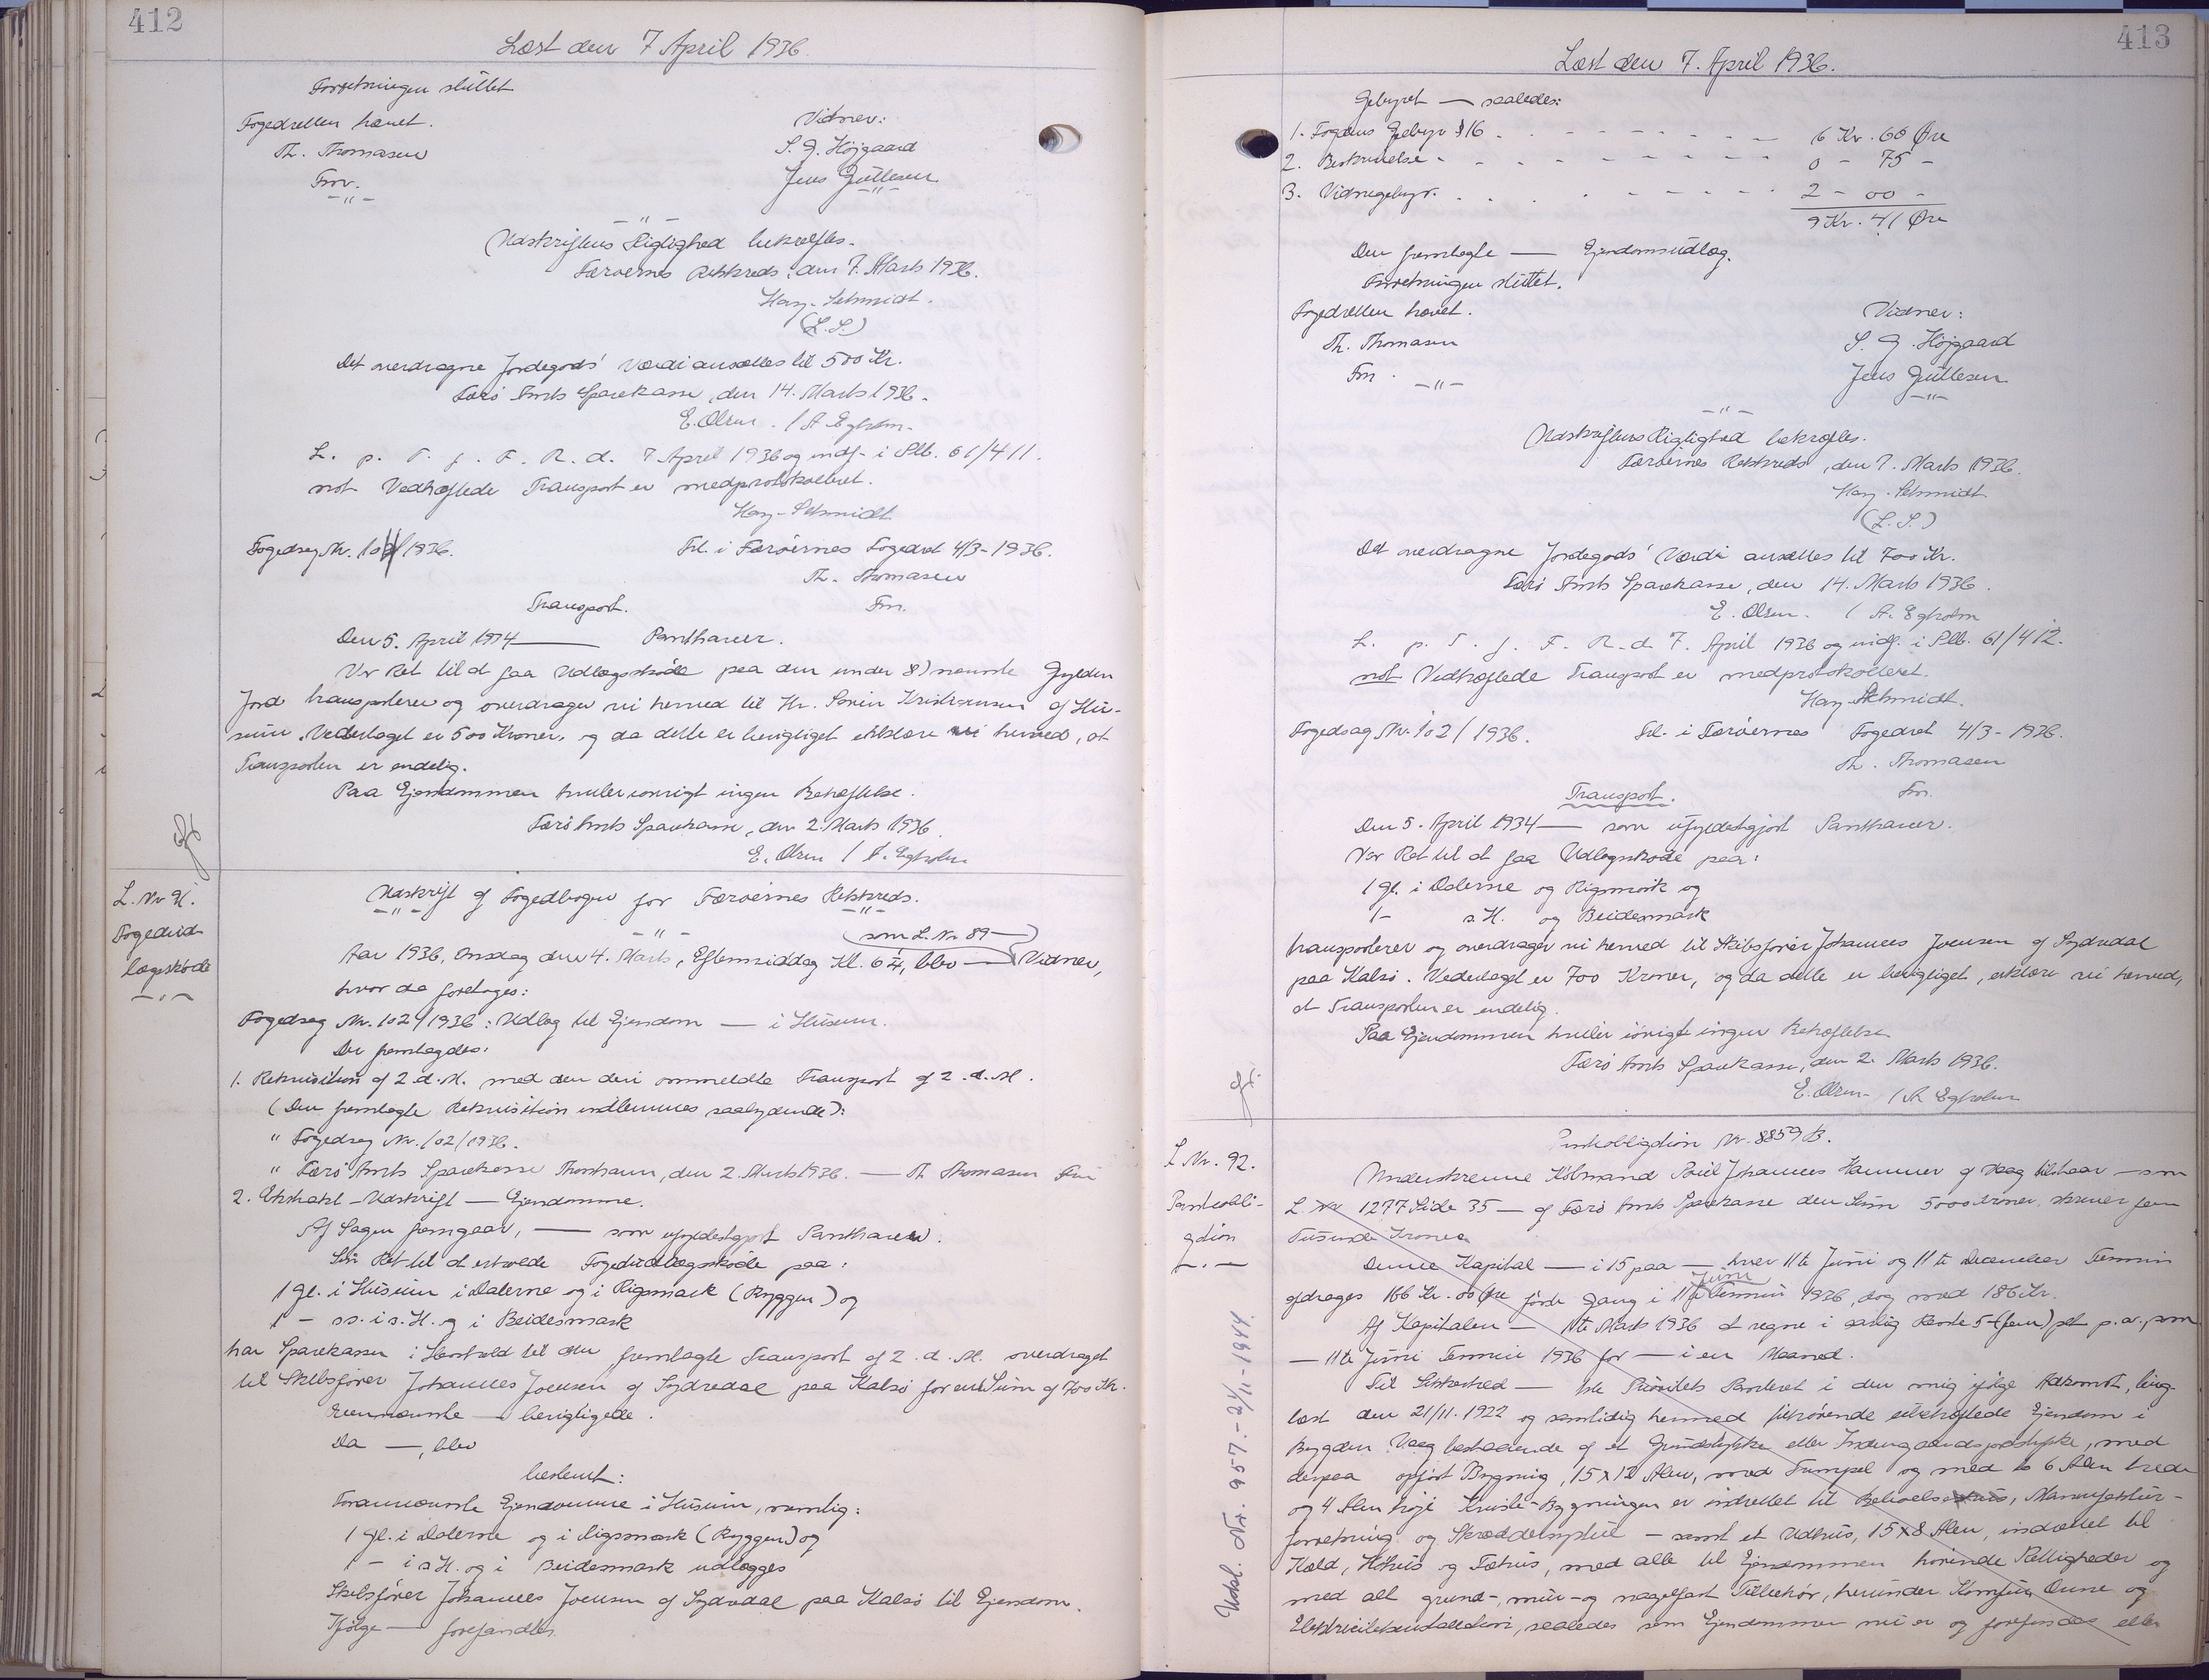 412
Læst den 7 April 1936.
Forretningen sluttet
Fogedretten hævet.
Vidner:
Th. Thomasen
S. J. Højgaard
Fm.
Jens Gullesen
-"-
-"-
-"-
Udskriftens Rigtighed bekræftes.
Færøernes Retskreds, den 7. Marts 1936.
Hary-Schmidt.
(L.S.)
Det overdragne Jordegods' Værdi ansættes til 500 Kr.
Færø Amts Sparekasse, den 14. Marts 1936.
E. Olsen. / A Egholm.
L. p. T. f. F. R. d. 7 April 1936 og indf. i Plb. 61/411.
not Vedhæftede Transport er medprotokolleret.
Hary-Schmidt
Fogedsag Nr. 102/1936.
Frl. i Færøernes Fogedret 4/3-1936.
Th. Thomasen
Transport.
Fm.
Den 5. April 1934 — Panthaver.
Vor Ret til at faa Udlægsskøde paa den under 8) nævnte Gylden
Jord transporterer og overdrager vi herved til Hr. Sørin Kristiansen af Hu-
sum. Vederlaget er 500 Kroner, og da dette er berigtiget erklære vi herved, at
Transporten er endelig.
Paa Ejendommen hviler iøvrigt ingen Behæftelse.
Færø Amts Sparekasse, den 2. Marts 1936.
E. Olsen / A. Egholm
L. Nr 91.
Fogedud-
lægsskøde
-"-
Udskrift af Fogedbogen for Færøernes Retskreds.
-"- -"-
-"-
som L. Nr 89—
Aar 1936, Onsdag den 4. Marts, Eftermiddag Kl. 6 1/4, blev — Vidner,
hvor da foretoges:
Fogedsag Nr. 102/1936: Udlæg til Ejendom — i Husum.
Der fremlagdes:
1. Rekvisition af 2. d. M. med den deri ommeldte Transport af 2. d. M.
(Den fremlagte Rekvisition indlemmes saalydende):
" Fogedsag Nr. 102/1936.
" Færø Amts Sparekasse Thorshavn, den 2. Marts 1936. — Th. Thomasen Fm
2. Ekstrakt-Udskrift — Ejendomme.
Af Sagen fremgaar, — som ufyldestgjort Panthaver.
Sin Ret til at erholde Fogedudlægsskøde paa:
1 gl. i Husum i Dalerne og i Rigsmark (Ryggen) og
1 - ss. i s. H. og i Beidesmark
har Sparekassen i Henhold til den fremlagte Transport af 2. d. M. overdraget
til Skibsfører Johannes Joensen af Sydredal paa Kalsø for en Sum af 700 Kr.
Evennævnte — berigtigede.
Da —, blev
bestemt:
Forannævnte Ejendomme i Husum, nemlig:
1 gl. i Dalerne og i Rigsmark (Ryggen) og
1 - i s H. og i Beidesmark udlægges
Skibsfører Johannes Joensen af Sydredal paa Kalsø til Ejendom.
Ifølge — forefandtes
413
Læst den 7. April 1936.
Gebyret — saaledes:
1. Fogdens Gebyr § 16 . - - - 6 Kr. 66 Øre
2. Beskrivelse - - - - 0 - 75 -
3. Vidnegebyr. . - - - 2 - 00 -
9 Kr. 41 Øre
Den fremlagte — Ejendomsudlæg.
Forretningen sluttet.
Fogedretten hævet.
Vidner:
Th. Thomasen
S. J. Højgaard
Fm. -"-
Jens Gullesen
-"-
-"-
Udskriftens Rigtighed bekræftes.
Færøernes Retskreds, den 7. Marts 1936.
Hary-Schmidt
(L.S.)
Det overdragne Jordegods' Værdi ansættes til 700 Kr.
Færø Amts Sparekasse, den 14. Marts 1936.
E. Olsen. / A. Egholm
L. p. T. f. F. R. d. 7. April 1936 og indf. i Plb. 61/412.
not Vedhæftede Transport er medprotokolleret.
Hary-Schmidt.
Fogedsag Nr. 102/1936.
Frl. i Færøernes Fogedret 4/3-1936.
Th. Thomasen
Transport.
Fm.
Den 5. April 1934 — som ufyldestgjort Panthaver.
Vor Ret til at faa Udlægsskøde paa:
1 gl. i Dalerne og Rigsmark og
1- s. H. og Beidesmark
transporterer og overdrager vi herved til Skibsfører Johannes Joensen af Sydredal
paa Kalsø. Vederlaget er 700 Kroner, og da dette er berigtiget, erklære vi herved,
at Transporten er endelig.
Paa Ejendommen hviler iøvrigt ingen Behæftelse.
Færø Amts Sparekasse, den 2. Marts 1936.
E. Olsen. / A Egholm
L Nr. 92.
Pantobli-
gation
-.-
Udsl. Nr. 957. - 2/11-1944
Pantobligation Nr. 8859 B.
Underskrevne Købmand Poul Johannes Hammer af Vaag tilstaar — som
L. Nr 1277 Side 35 — af Færø Amts Sparekasse den Sum 5000 Kroner, skriver fem
Tusinde Kroner
Denne Kapital — i 15 paa — hver 11te Juni og 11te December Termin
afdrages 166 Kr. 00 Øre første Gang i 11te Juni Termin 1936, dog med 186 Kr.
Af Kapitalen — 11te Marts 1936 at regne i aarlig Rente 5-(fem) pct p. a., som
— 11te Juni Termin 1936 for — i en Maaned.
Til Sikkerhed — 1ste Prioritets Panteret i den mig ifølge Adkomst, ting-
læst den 21/11. 1922 og samtidig hermed tilhørende ubehæftede Ejendom i
Bygden Vaag bestaaende af et Grundstykke eller Indengærdsjordstykke, med
derpaa opført Bygning, 15 x 12 Alen, med Tumpel og med to 6 Alen brede
og 4 Alen høje Kviste-Bygningen er indrettet til Beboelseshus, Manufaktur-
forretning og Skræddersystue - samt et Udhus, 15 x 8 Alen, indrettet til
Kold, Høhus og Fæhus, med alle til Ejendommen hørende Rettigheder og
med alt grund-, mur- og nagelfast Tilbehør, herunder Komfur Ovne og
Elektricitetsinstallation, saaledes som Ejendommen nu er og forefindes eller